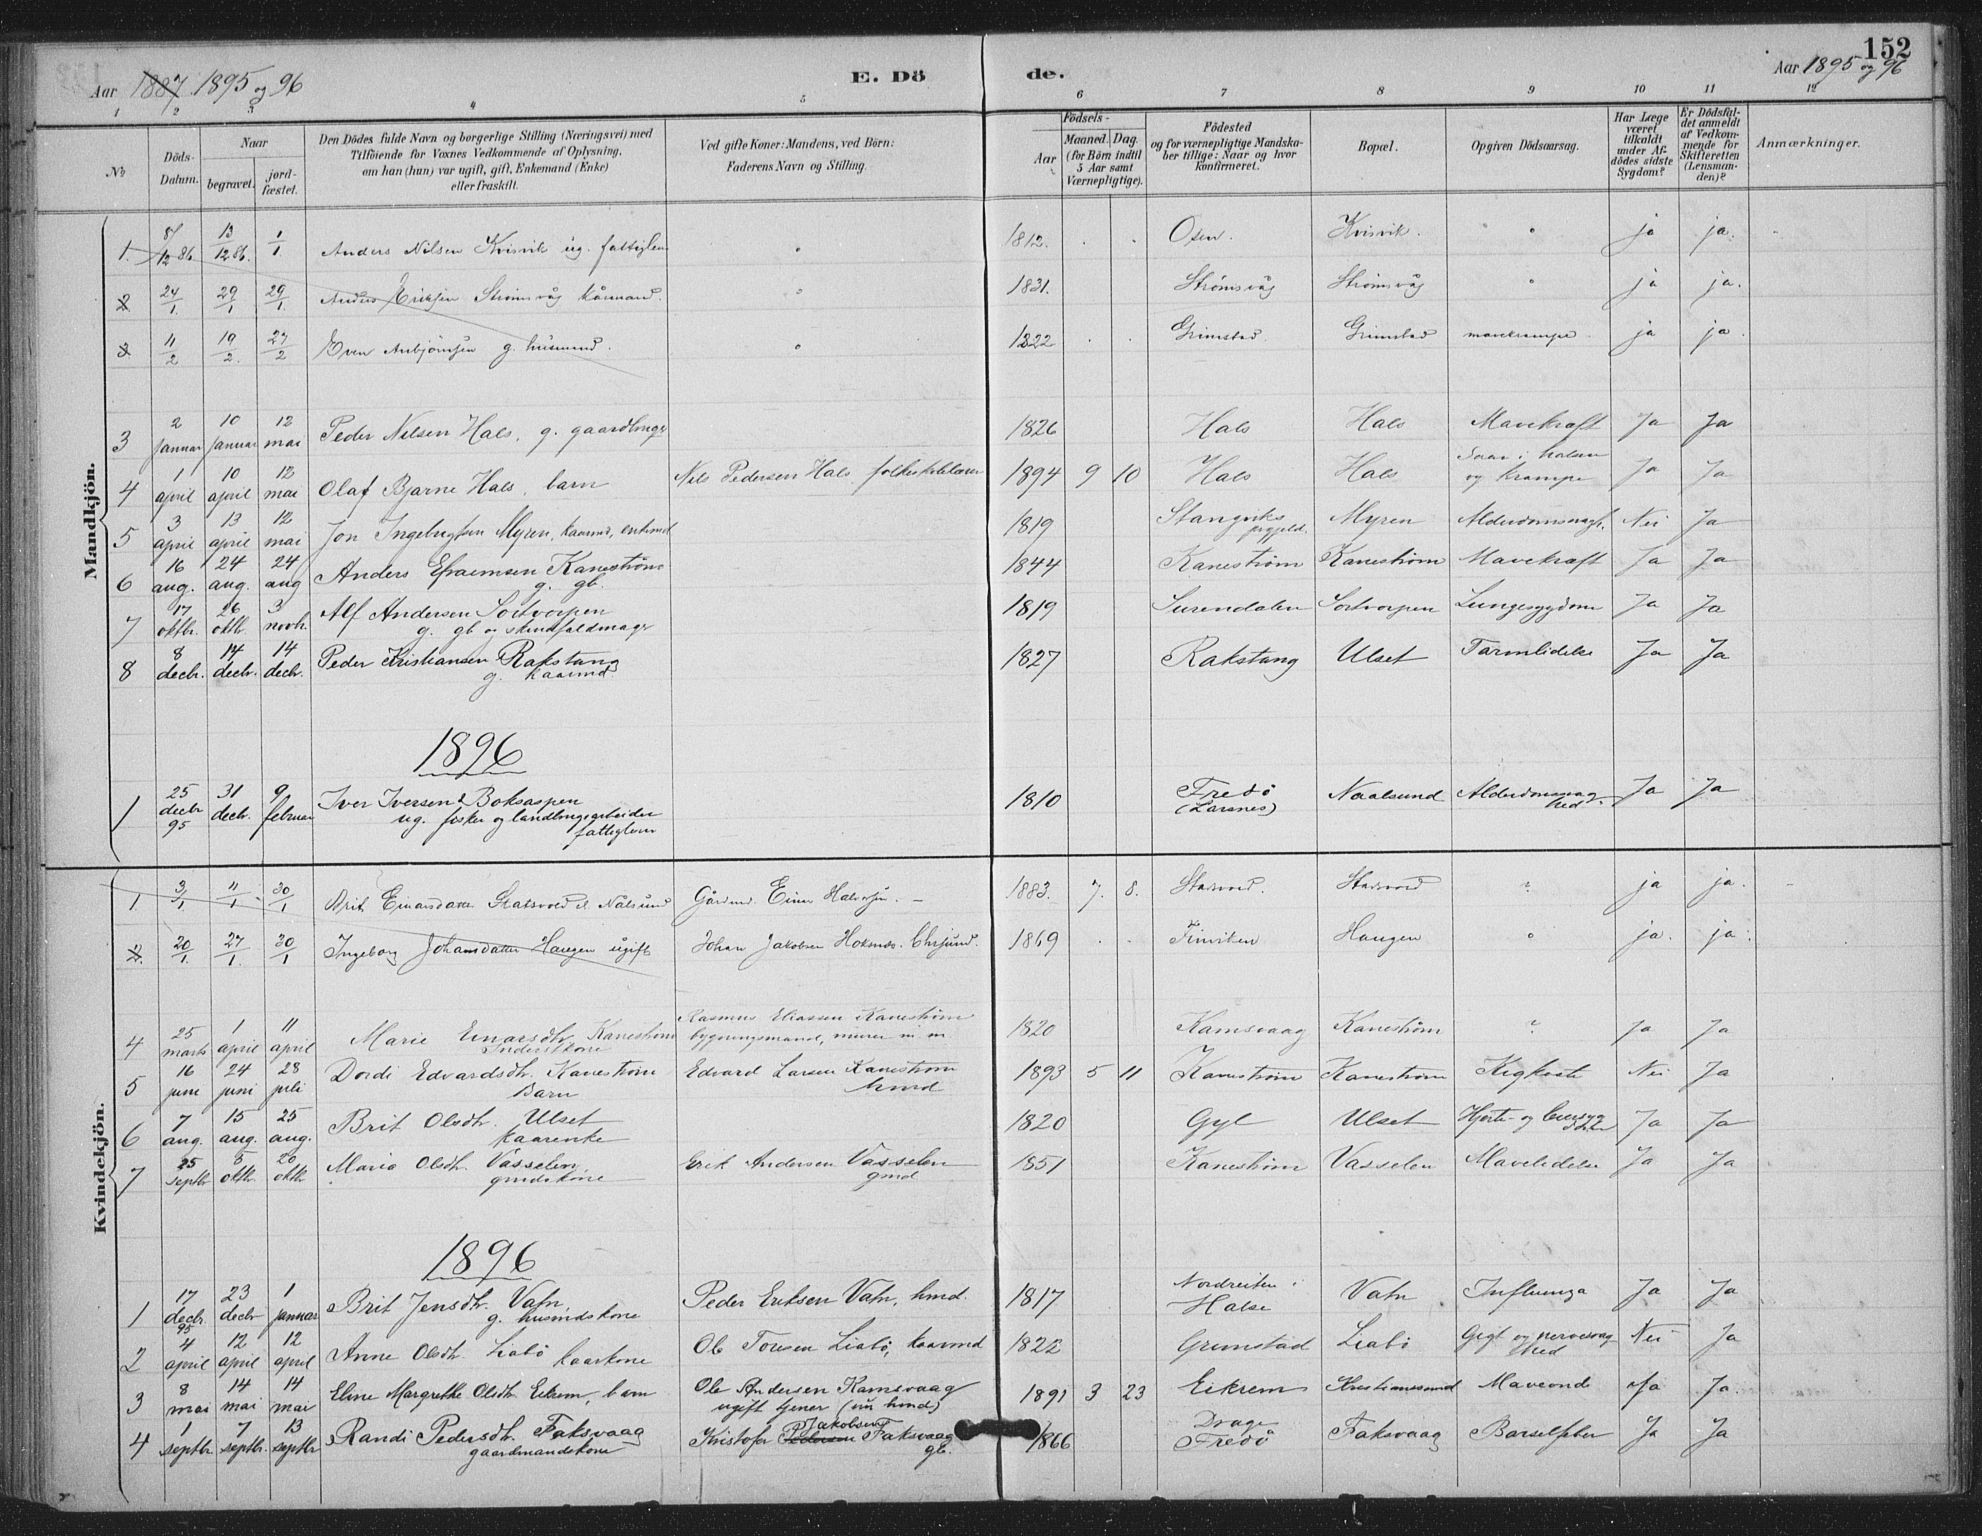 152
Aar 1887. 1895 og 96
E. Dö
de.
Aar 1895 og 96
1 2 3 4 5 6 7 8 9 10 11 12
No
Döds-Datum.
Naar
begravet.
jord-fæstet.
Den Dödes fulde Navn og borgerlige Stilling (Næringsvei) med
Tilföiende for Voxnes Vedkommende af Oplysning,
om han (hun) var ugift, gift, Enkemand (Enke)
eller fraskilt.
Ved gifte Koner: Mandens, ved Börn:
Faderens Navn og Stilling.
Födsels-
Aar
Maaned. Dag.
(for Börn indtil
5 Aar samt
Værnepligtige).
Födested
og for værnepligtige Mandska-
ber tillige: Naar og hvor
konfirmeret.
Bopæl.
Opgiven Dödsaarsag.
Har Læge
været
tilkaldt
under Af-
dödes sidste
Sygdom?
Er Dödsfal-
det anmeldt
af Vedkom-
mende for
Skifteretten
(Lensman-
den)?
Anmærkninger.
Mandkjön.
1. 8/12 86 13/12 86. 1/1. Anders Nilsen Kvisvik ug. fattiglem " 1812. . . Osen. Kvisvik. " " ja ja.
2 24/1 29/1 29/1. Anders Eriksen Strömsvåg kårmand. " 1831. Strømsvåg Strömsvåg " ja ja.
3 11/2 19/2. 27/2 Even Anbjörnsen g. husmand. " 1822 . . Grimstad. Grimstad mavekrampe. ja ja.
3 2 januar 10 januar 12 mai Peder Nilsen Hals, g. gaardbruger 1826 Hals Hals Mavekræft Ja Ja
4 1 april 10 april 12 mai Olaf Bjarne Hals, barn Nils Pedersen Hals, folkeskolelærer 1894 9 10 Hals Hals Saar i halsen
og krampe Ja Ja
5 3 april 13 april 12 mai Jon Ingebrigtsen Myren, kaarmd, enkemd 1819 Stangviks
prgjeld. Myren Alderdomssvagh. Nei Ja
6 16 aug. 24 aug. 24 aug Anders Efraimsen Kanestrøm
g. gb. 1844 Kanestrøm Kanestrøm Mavekræft Ja Ja
7 17 oktbr. 26 oktb. 3 novb. Alf Andersen Sortvorpen
g. gb og skindfeldmager 1819 Surendalen Sortvorpen Lungesygdom Ja Ja
8 8 decbr. 14 decbr. 14 decbr. Peder Kristiansen Rakstang
g. kaarmd. 1827 Rakstang Ulset Tarmlidelse Ja Ja
1896
1 25 decbr 95 31 decb. 9 februar Iver Iversen Boksaspen
ug. fisker og landbrugsarbeider
fattiglem 1810 Fredö
(Larsnes) Naalsund Alderdomssvag-
hed Ja Ja
Kvindekjön.
1. 3/1 11/1. 30/1 Brit Einarsdatter Statsvold Nålsund Gårdmd. Einar Halvorsen. – 1883. 7. 8. Starsvold. Starsvold ? ja ja.
2. 20/1. 27/1. 30/1 Ingeborg Johansdatter Haugen ugift Johan Jakobsen Hoksnes. Chrsund. 1869 . . Haugen " ja. ja.
4 25 marts 1 april 11 april Marie Einarsdtr. Kanestrøm
Inderstkone Rasmus Eliassen Kanestrøm
bygningsmand, murer m m 1820 Kamsvaag Kanestrøm ? Ja Ja
5 16 juni 24 juni 28 juli Dordi Edvardsdtr. Kanestrøm
Barn Edvard Larsen Kanestrøm
hmd 1893 5 11 Kanestrøm Kanestrøm Kighoste Nei Ja
6 7 aug. 15 aug. 25 aug. Brit Olsdtr. Ulset
kaarenke 1820 Gyl Ulset Hjerte- og Ja Ja
7 25 septbr 8 oktb. 20 oktb Marie Olsdtr. Vasselen,
gmdskone Erik Andersen Vasselen
gmd 1851 Kanestrøm Vasselen Mavelidelse Ja Ja
1896
1 17 decbr. 95 23 decbr 1 januar Brit Jensdtr. Vatn,
g. husmdskone Peder Eriksen Vatn, hmd. 1817 Nordreiten i
Halse Vatn Influenza Ja Ja
2 4 april 12 april 12 april Anne Olsdtr. Liabö kaarkone Ole Toresen Liabö, kaarmd 1822 Grimstad Liabö Gigt og nervesvag-
hed Nei Ja
3 8 mai 14 mai 14 mai Eline Margrethe Olsdtr. Eikrem, barn Ole Andersen Kamsvaag
ugift tjener (nu hmd) 1891 3 23 Eikrem Kristianssund Maveonde Ja Ja.
4 1 septbr. 7 septbr. 13 septbr Randi Pedersdtr. Faksvaag
gaardmandskone Kristofer Pedersen Jakobsen Faksvaag
gb. 1866 Drage
Fredö Faksvaag Barselfeber Ja Ja